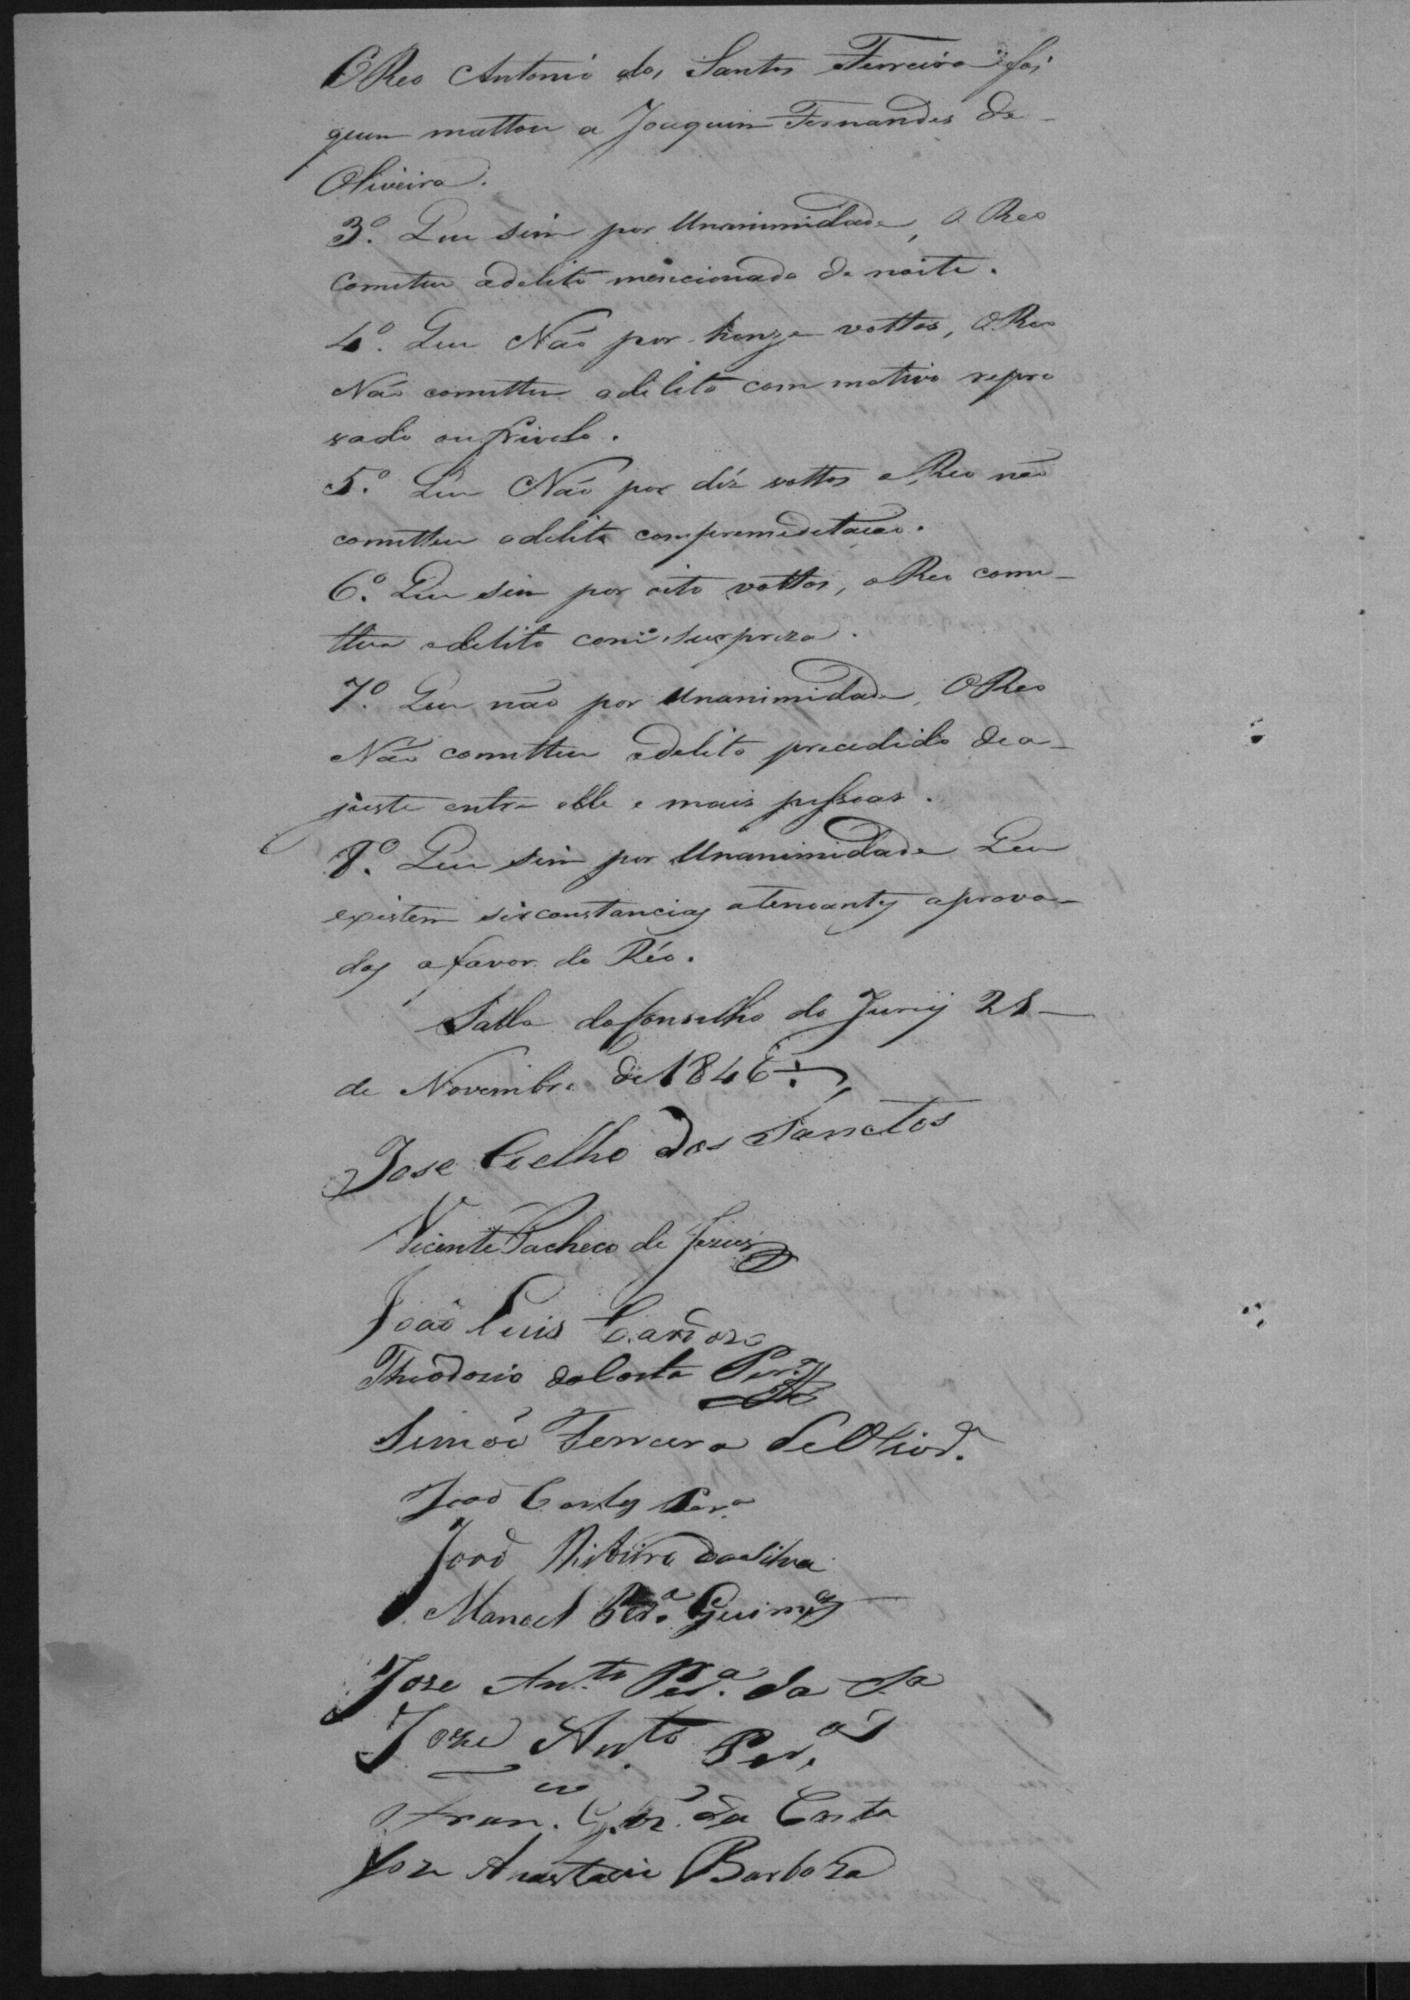 O Reo Antonio dos Santos Ferreira foi
quem mattou a Joaquim Fernandes de
Oliveira.
3º. Que sim por Unanimidade, o Reo
cometeu o delito mencionado de noite.
4º. Que Não por honze vottos, O Reo
Não cometteu o delito com motivo repro
vado ou frivolo.
5º. Que Não por déz vottos o Reo não
cometteu o delito com premeditacão.
6º. Que sim por oito vottos, o Reo come-
tteu o delito com surpreza.
7º. Que não por Unanimidade, O Reo
Não cometteu o delito precedido de a-
juste entre elle e mais pessoas.
8º. Que sim por Unanimidade Que
existem sirconstancias atenoantes aprova-
das a favor do Réo.
Salla do Conselho do Jury 28
de Novembro de 1846
Jose Coelho dos Sanctos
Vicente Pacheco de Jezus
João Luis Cardozo
Theodozio da Costa Per.ª
Simão Ferreira de
João Cortes Per.ª
João Ribeiro da Silva
Manoel Per.ª Guim.es
Joze An.to Per.ª da S.ª
Joze An.to Per.ª
Fran.co da Costa
Joze Anastacio Barboza